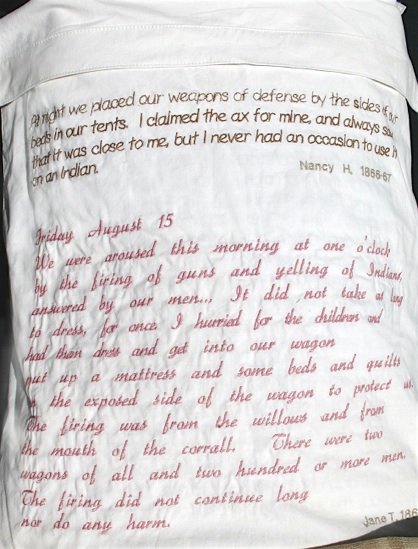 At night we placed our weapons of defense by the sides of our
beds in our tents. I claimed the ax for mine, and always saw
that it was close to me, but I never had an occasion to use it
on an Indian.
Nancy H. 1866-67
Friday August 15
We were aroused this morning at one o'clock
by the firing of guns and yelling of Indians,
answered by our men... It did not take us long
to dress, for once I hurried for the children and
had them dress and get into our wagon
put up a mattress and some beds and quilts
on the exposed side of the wagon to protect us.
The firing was from the willows and from
the mouth of the corrall. There were two
wagons of all and two hundred or more men.
The firing did not continue long
nor do any harm.
Jane T. 186